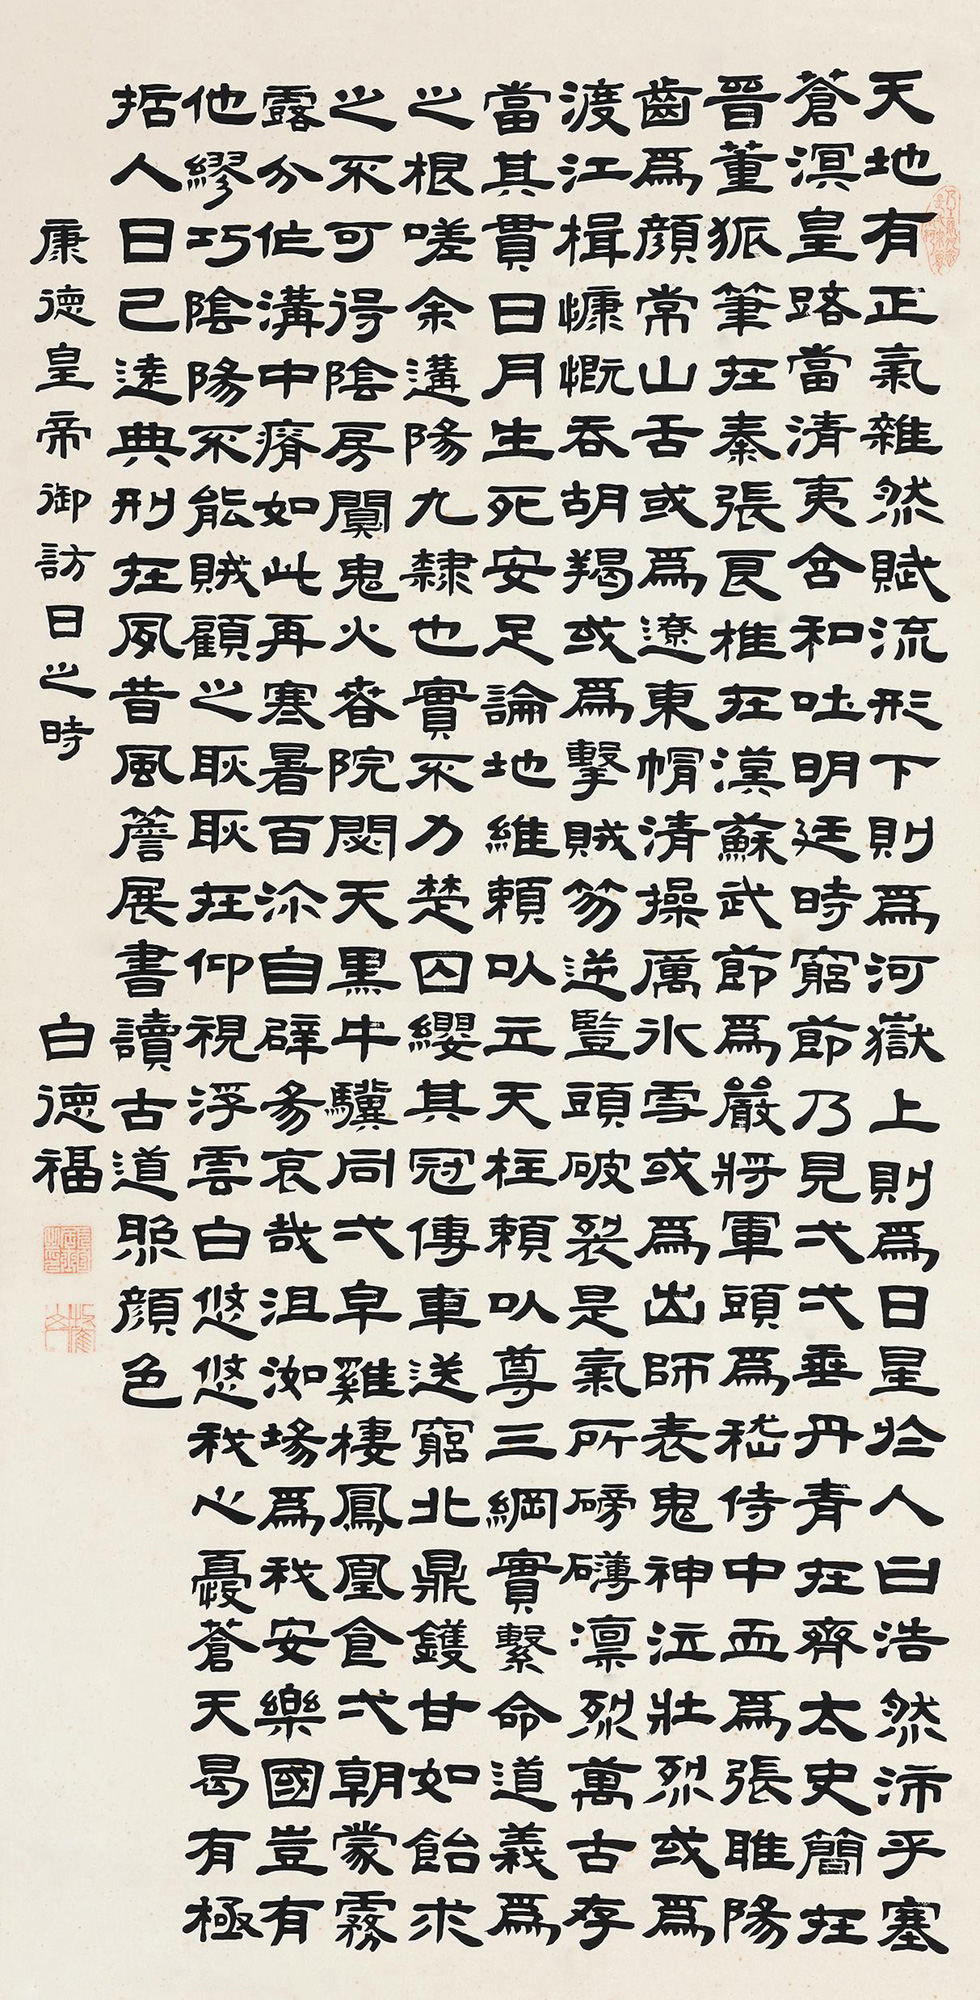 天地有正氣雜然賦流形下則爲河嶽上則爲日星於人曰浩然沛乎塞
蒼溟皇路當清夷含和吐明廷時窮節乃見弌弌垂丹青在齊太史簡在
晉董狐筆在秦張良椎在漢蘇武節爲嚴將軍頭爲嵇侍中血爲張睢陽
齒爲顏常山舌或爲遼東帽清操厲冰雪或爲出師表鬼神泣壯烈或爲
渡江楫慷慨吞胡羯或爲擊賊笏逆豎頭破裂是氣所磅礴凜烈萬古存
當其貫日月生死安足論地維賴以立天柱賴以尊三綱實繫命道義爲
之根嗟余遘陽九隸也實不力楚囚纓其冠傳車送窮北鼎鑊甘如飴求
之不可得陰房闃鬼火春院閟天黑牛驥同弌皁雞棲鳳凰食弌朝蒙霧
露分作溝中瘠如此再寒暑百沴自辟易哀哉沮洳場爲我安樂國豈有
他繆巧陰陽不能賊顧之耿耿在仰視浮雲白悠悠我心憂蒼天曷有極
哲人日已遠典刑在夙昔風簷展書讀古道照顏色
康德皇帝御訪日之時 白德福